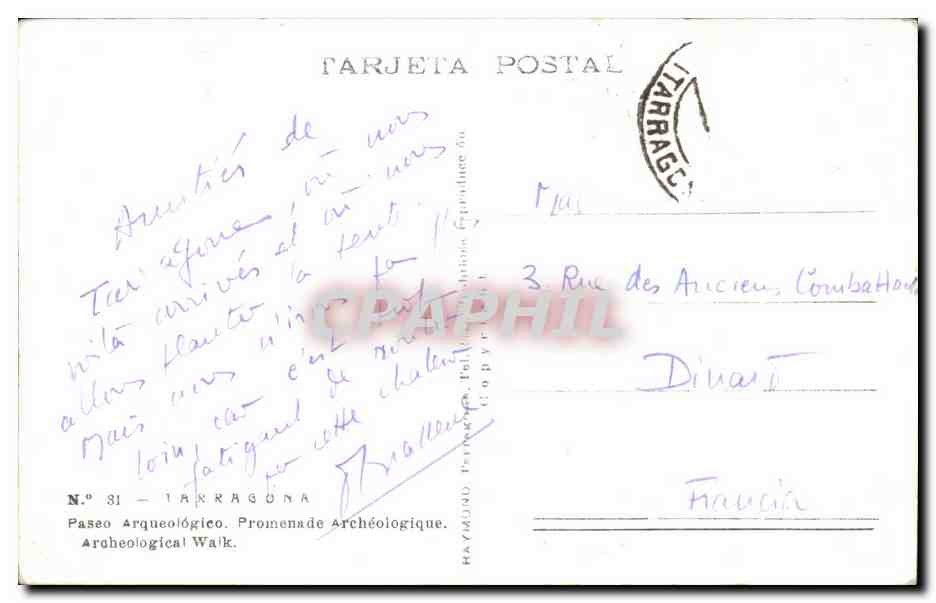 TARJETA POSTAL
TARRAGO
Amitiés de
Tarragone, où nous
voilà arrivés et où nous
allons planter la tente.
Mais nous n'irons pas plus
loin, car c'est
fatigant de
par cette chaleur
3 Rue des Anciens Combattants
Dinard
Francia
CPAPHIL
N.º 31 — TARRAGONA
Paseo Arqueológico. Promenade Archéologique.
Archeological Walk.
RAYMOND
Copyright